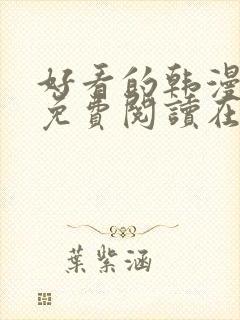 好看的韩漫
免費閱讀在
葉紫涵